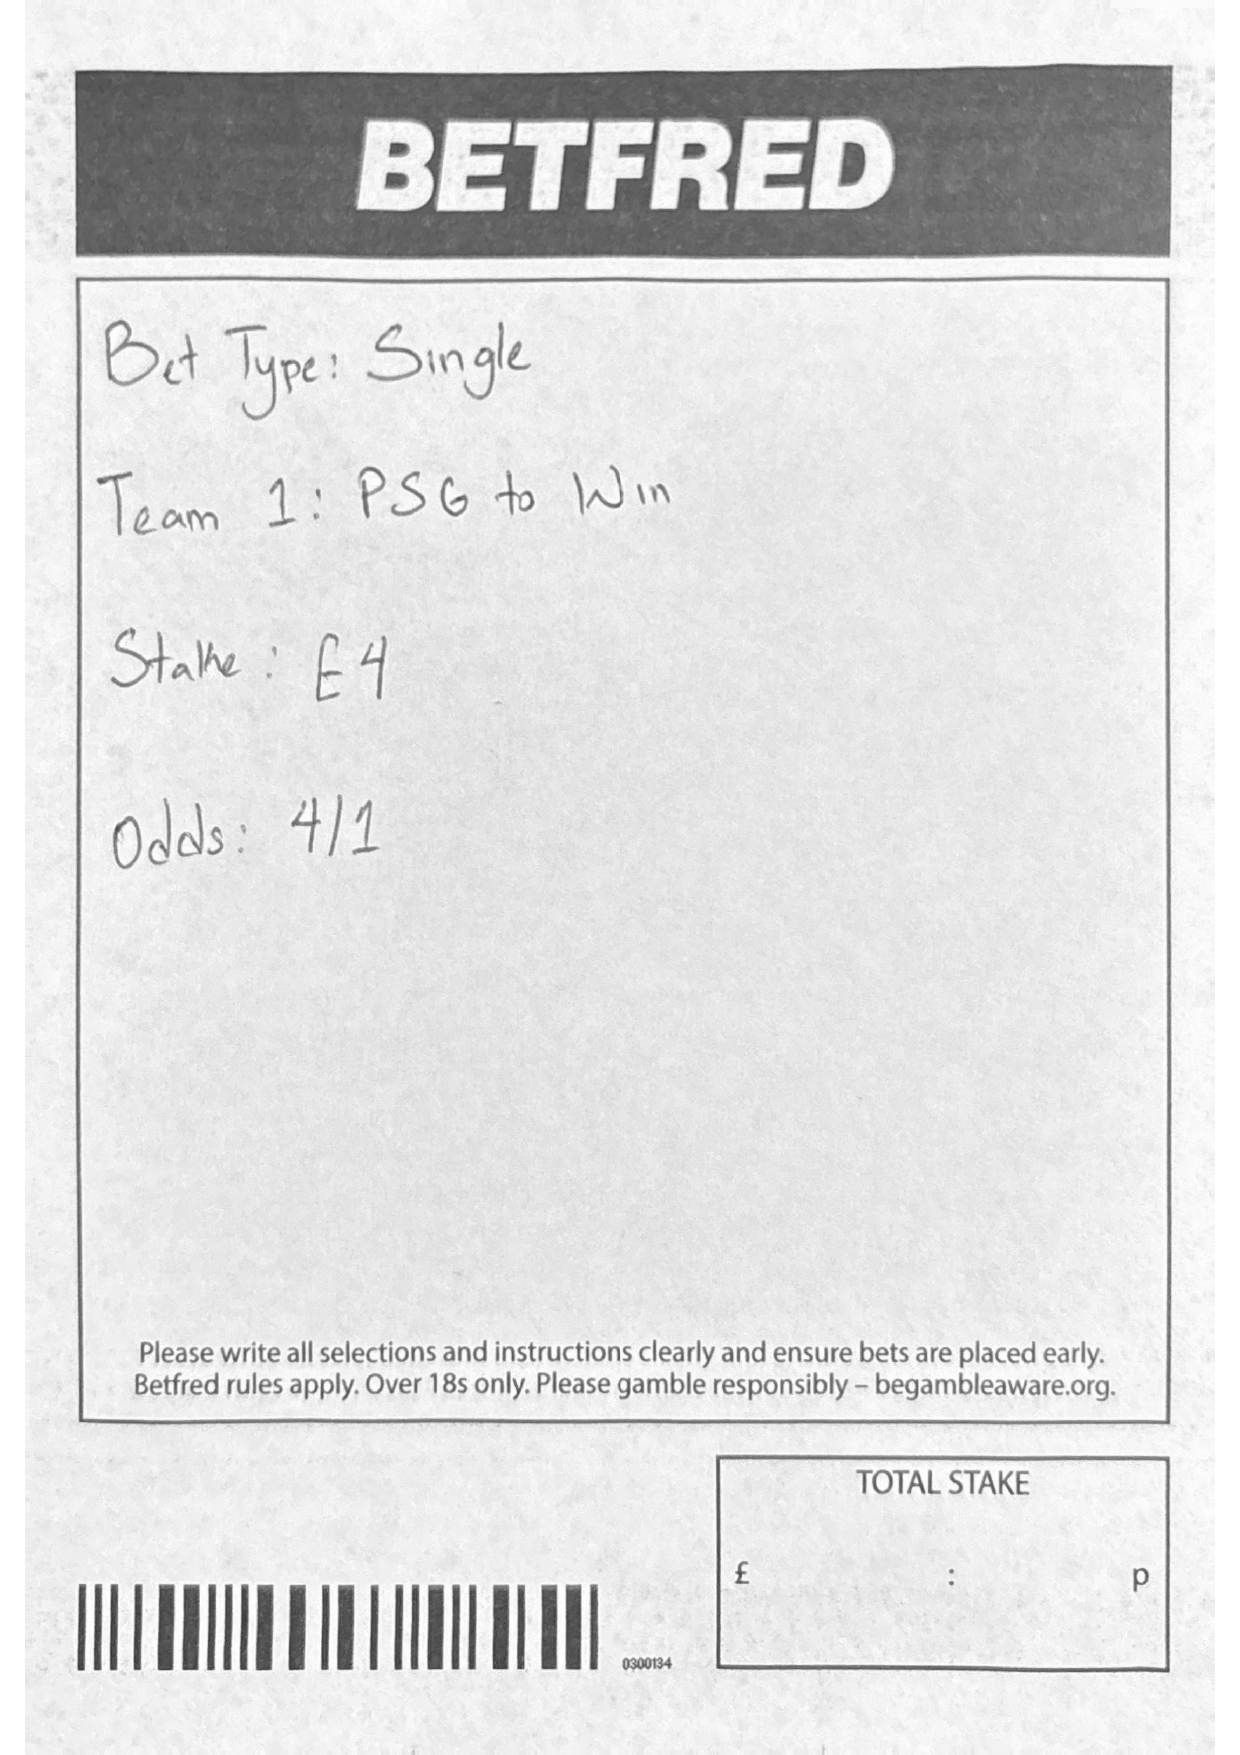 BETFRED
Bet Type: Single
Team 1: PSG to Win
Stake: £4
Odds: 4/1
Please write all selections and instructions clearly and ensure bets are placed early.
Betfred rules apply. Over 18s only. Please gamble responsibly – begambleaware.org.
TOTAL STAKE
£ : p
0300134